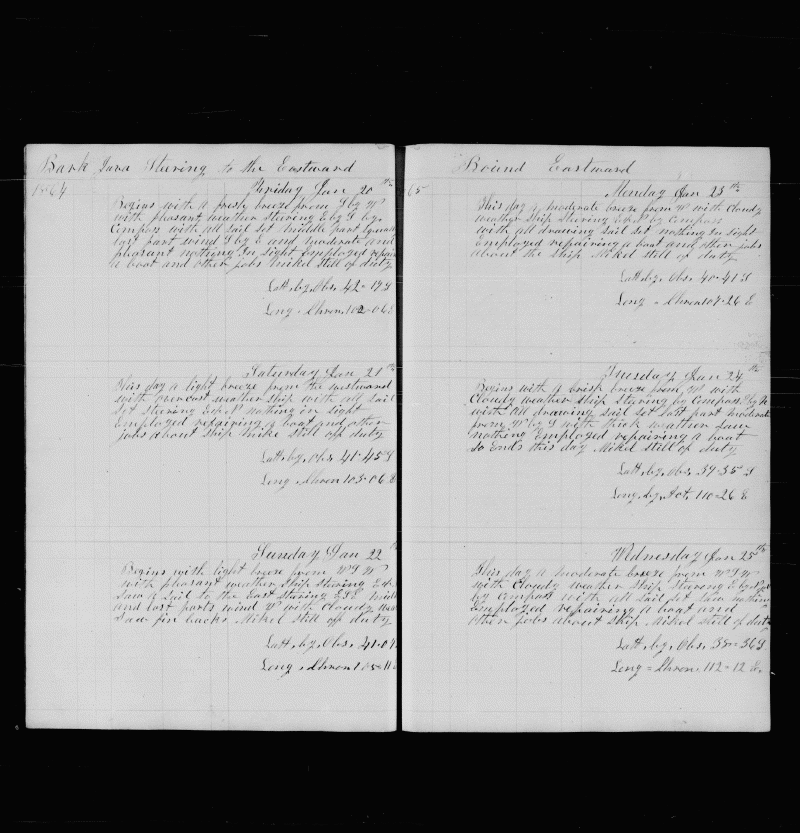 Bark Java Stering to the Eastward
1864
Friday Jan 20th
Begins with a fresh breeze from S by W
with pleasant weather stering E by S by
Compass with all sail set middle part
last part wind S by E and moderate and
pleasant nothing In sight Employed repair
a boat and other jobs Mikel still of duty
Latt, by, Obs, 42-19 S
Long, Chron, 102-06 E
Saturday Jan 21th
This day a light breeze from the westward
with overcast weather ship with all sail
set stering nothing in sight
Employed repairing a boat and other
jobs about ship Mike still of duty
Latt, by, Obs, 41-45 S
Long, Chron 103-06 E
Sunday Jan 22
Begins with light breeze from W S W
with pleasant weather, Ship stering
Saw a Sail to the East stering
and last parts wind W with Cloudy
Saw fin backs Mikel Still off duty
Latt, by, Obs, 41-04
Long, Chron, 105-11
Bound Eastward
65
Monday Jan 23th
This day a moderate breeze from W with Cloudy
weather Ship stering by Compass
with all drawing sail set nothing In sight
Employed repairing a boat and other jobs
about the ship Mikel still of duty
Latt, by, Obs, 40-41 S
Long = Chron 107-26 E
Tuesday Jan 24th
Begins with a brisk breeze from W with
Cloudy weather ship stering by Compass
with all drawing sail set last part moderate
from W by S with thick weather saw
nothing Employed repairing a boat
so Ends this day Mikel still of duty
Latt, by, Obs, 39-35 S
Long, by, Act, 110-26 E
Wednesday Jan 25th
This day a moderate breeze from W S W
with Cloudy weather Ship stering
by Compass with all sail set saw nothing
Employed repairing a boat and
other jobs about ship Mikel still of duty
Latt, by, Obs, 38-36 S
Long = Chron, 112=12 E